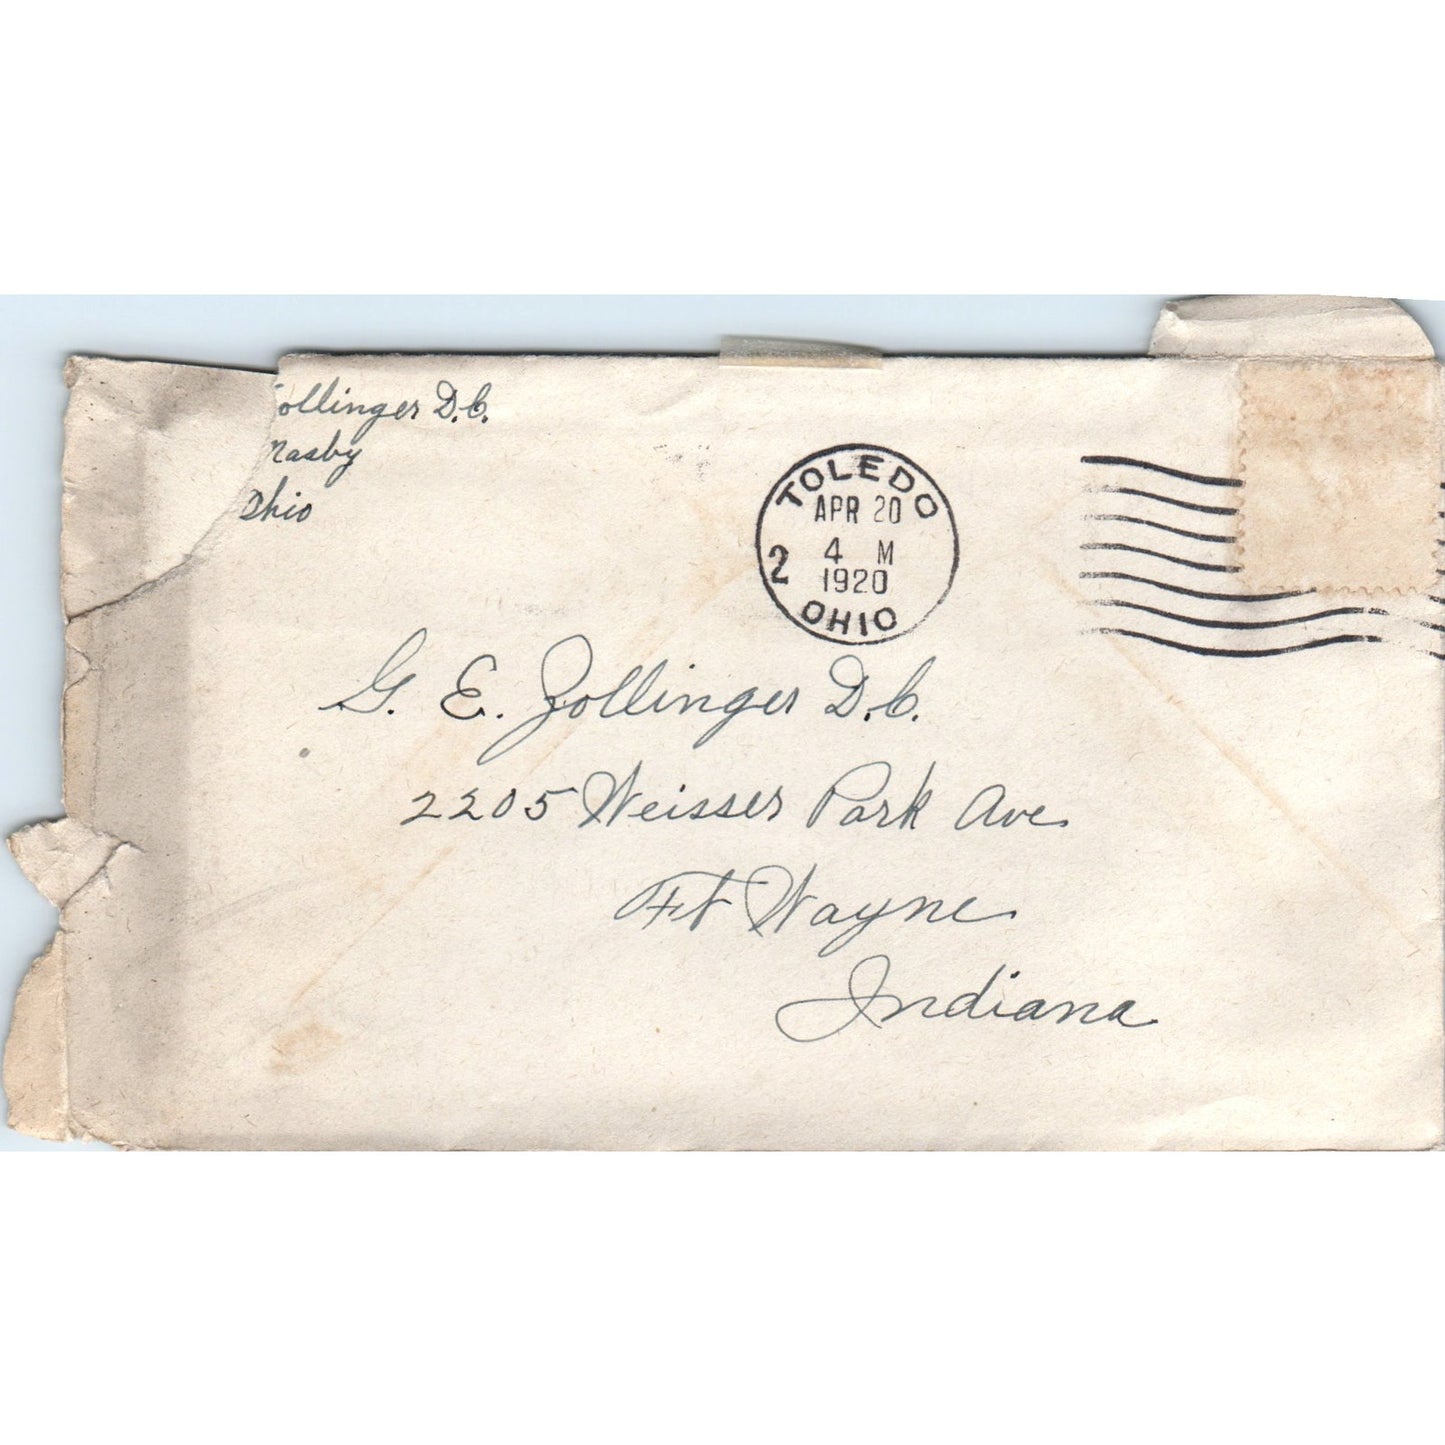 ollinger D.C.
Nasby
Ohio
TOLEDO
APR 20
4 M
2
1920
OHIO
G. E. Zollinger D.C.
2205 Weisser Park Ave.
Ft Wayne
Indiana